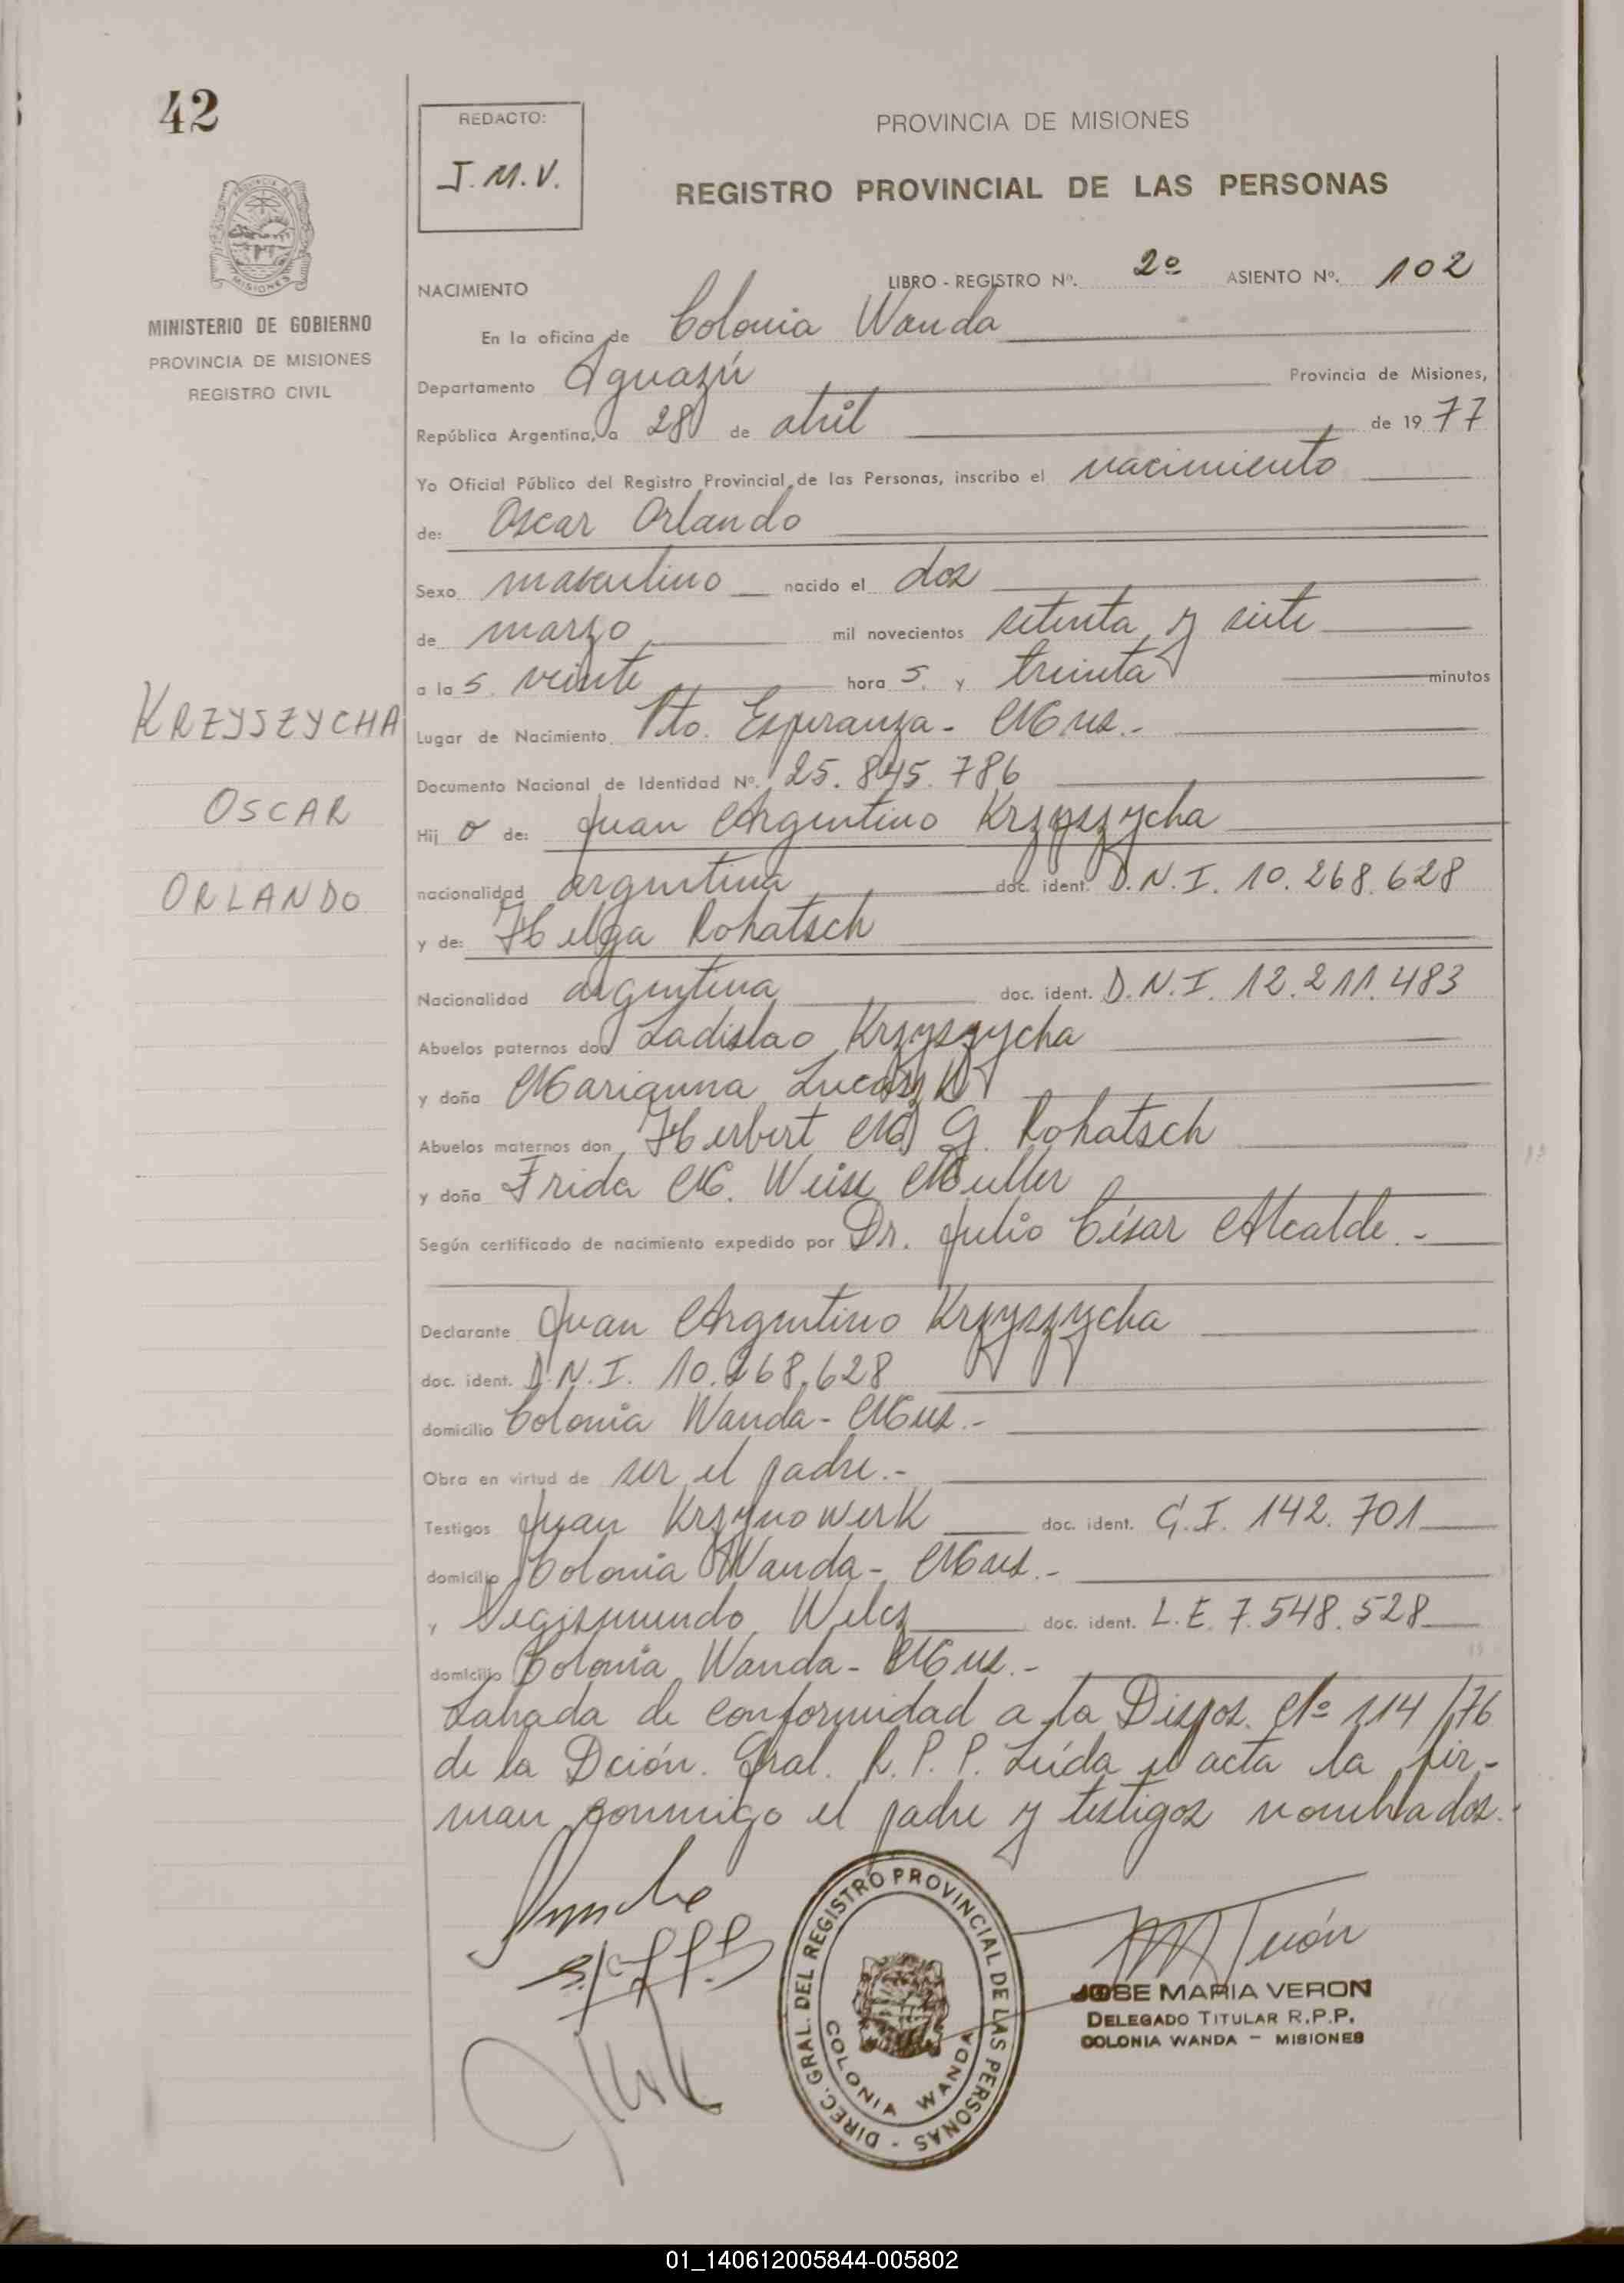 42
REDACTO:
J.M.V.
PROVINCIA DE MISIONES
REGISTRO PROVINCIAL DE LAS PERSONAS
PROVINCIA DE
MISIONES
MINISTERIO DE GOBIERNO
PROVINCIA DE MISIONES
REGISTRO CIVIL
NACIMIENTO LIBRO - REGISTRO Nº. 2º ASIENTO Nº. 102
En la oficina de Colonia Wanda
Departamento Iguazú Provincia de Misiones,
República Argentina, a 28 de abril de 1977
Yo Oficial Público del Registro Provincial de las Personas, inscribo el nacimiento
de: Oscar Orlando
Sexo masculino nacido el dos
de marzo mil novecientos setenta y siete
a las veinte horas y treinta minutos
Lugar de Nacimiento Pto. Esperanza - Mnes.-
Documento Nacional de Identidad Nº. 25.845.786
KRZYSZYCHA
OSCAR
ORLANDO
Hijo de: Juan Argentino Krzyszycha
nacionalidad argentina doc. ident. D.N.I. 10.268.628
y de: Helga Rohatsch
Nacionalidad argentina doc. ident. D.N.I. 12.211.483
Abuelos paternos don Ladislao Krzyszycha
y doña Marianna
Abuelos maternos don Herbert M. G. Rohatsch
y doña Frida M. Weise Muller
Según certificado de nacimiento expedido por Dr. Julio César Alcalde.-
Declarante Juan Argentino Krzyszycha
doc. ident. D.N.I. 10.268.628
domicilio Colonia Wanda - Mnes.-
Obra en virtud de ser el padre.-
Testigos Juan Krzynowerk doc. ident. C.I. 142.701
domicilio Colonia Wanda - Mnes.-
y Segismundo Wilcz doc. ident. L.E. 7.548.528
domicilio Colonia Wanda - Mnes.-
Labrada de conformidad a la Dispos. Nº 114/76
de la Dción. Gral. R.P.P. Leída el acta la fir-
man conmigo el padre y testigos nombrados.-
DIREC. GRAL. DEL REGISTRO PROVINCIAL DE LAS PERSONAS -
COLONIA WANDA
JOSE MARIA VERON
DELEGADO TITULAR R.P.P.
COLONIA WANDA - MISIONES
01_140612005844-005802